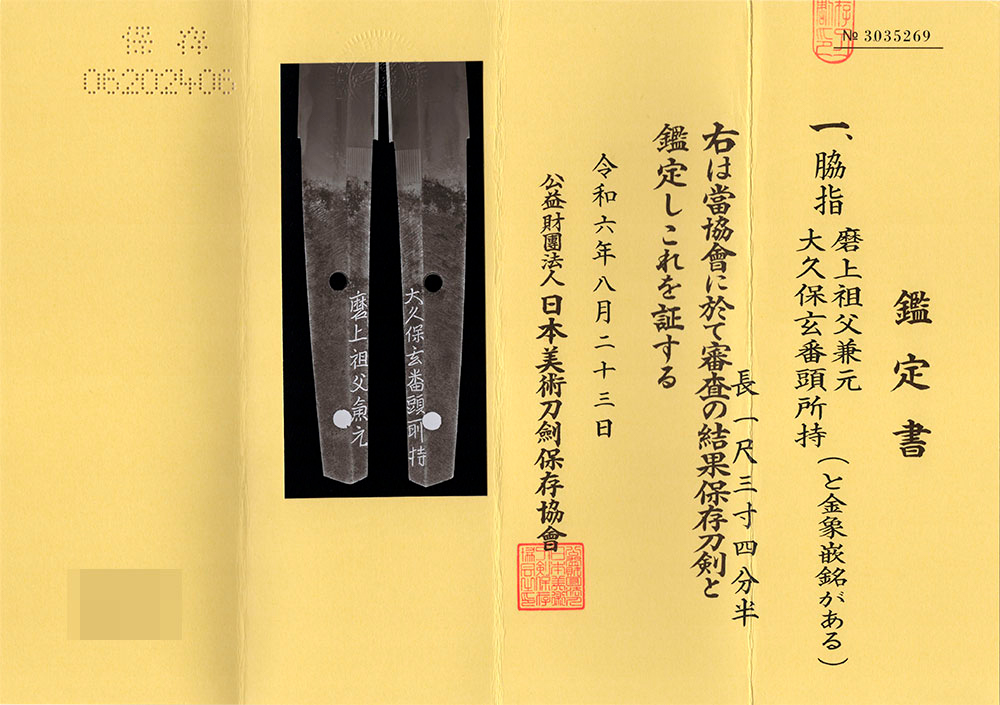 № 3035269
鑑定書
一、脇指
磨上祖父兼元
大久保玄番頭所持
（と金象嵌銘がある）
長一尺三寸四分半
右は當協會に於て審査の結果保存刀剣と
鑑定しこれを証する
令和六年八月二十三日
公益財團法人 日本美術刀劍保存協會
大久保玄番頭所持
磨上祖父兼元
保存
06202406